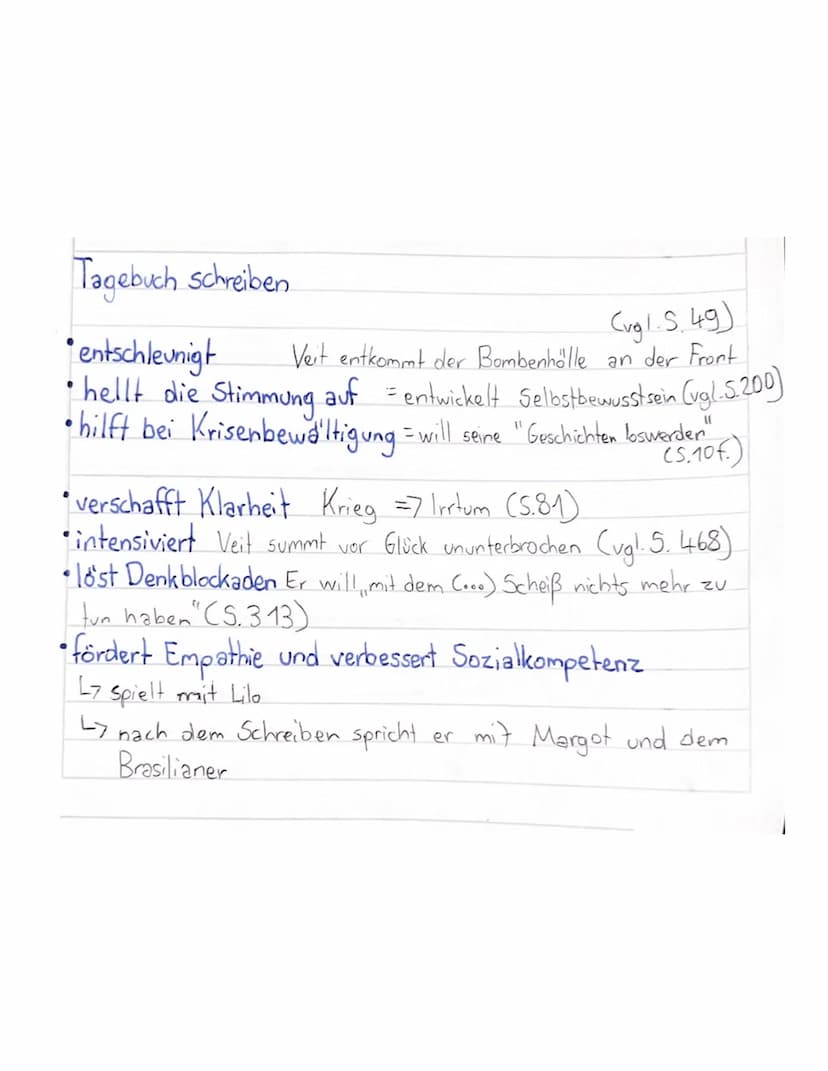 Tagebuch schreiben
(vgl. S. 49)
• entschleunigt Veit entkommt der Bombenhölle an der Front
• hellt die Stimmung auf = entwickelt Selbstbewusstsein (vgl. S. 200)
• hilft bei Krisenbewältigung = will seine "Geschichten loswerden"
(S. 10 f.)
• verschafft Klarheit Krieg => Irrtum (S. 81)
• intensiviert Veit summt vor Glück ununterbrochen (vgl. S. 468)
• löst Denkblockaden Er will „mit dem (...) Scheiß nichts mehr zu
tun haben" (S. 313)
• fördert Empathie und verbessert Sozialkompetenz
↳ spielt mit Lilo
↳ nach dem Schreiben spricht er mit Margot und dem
Brasilianer